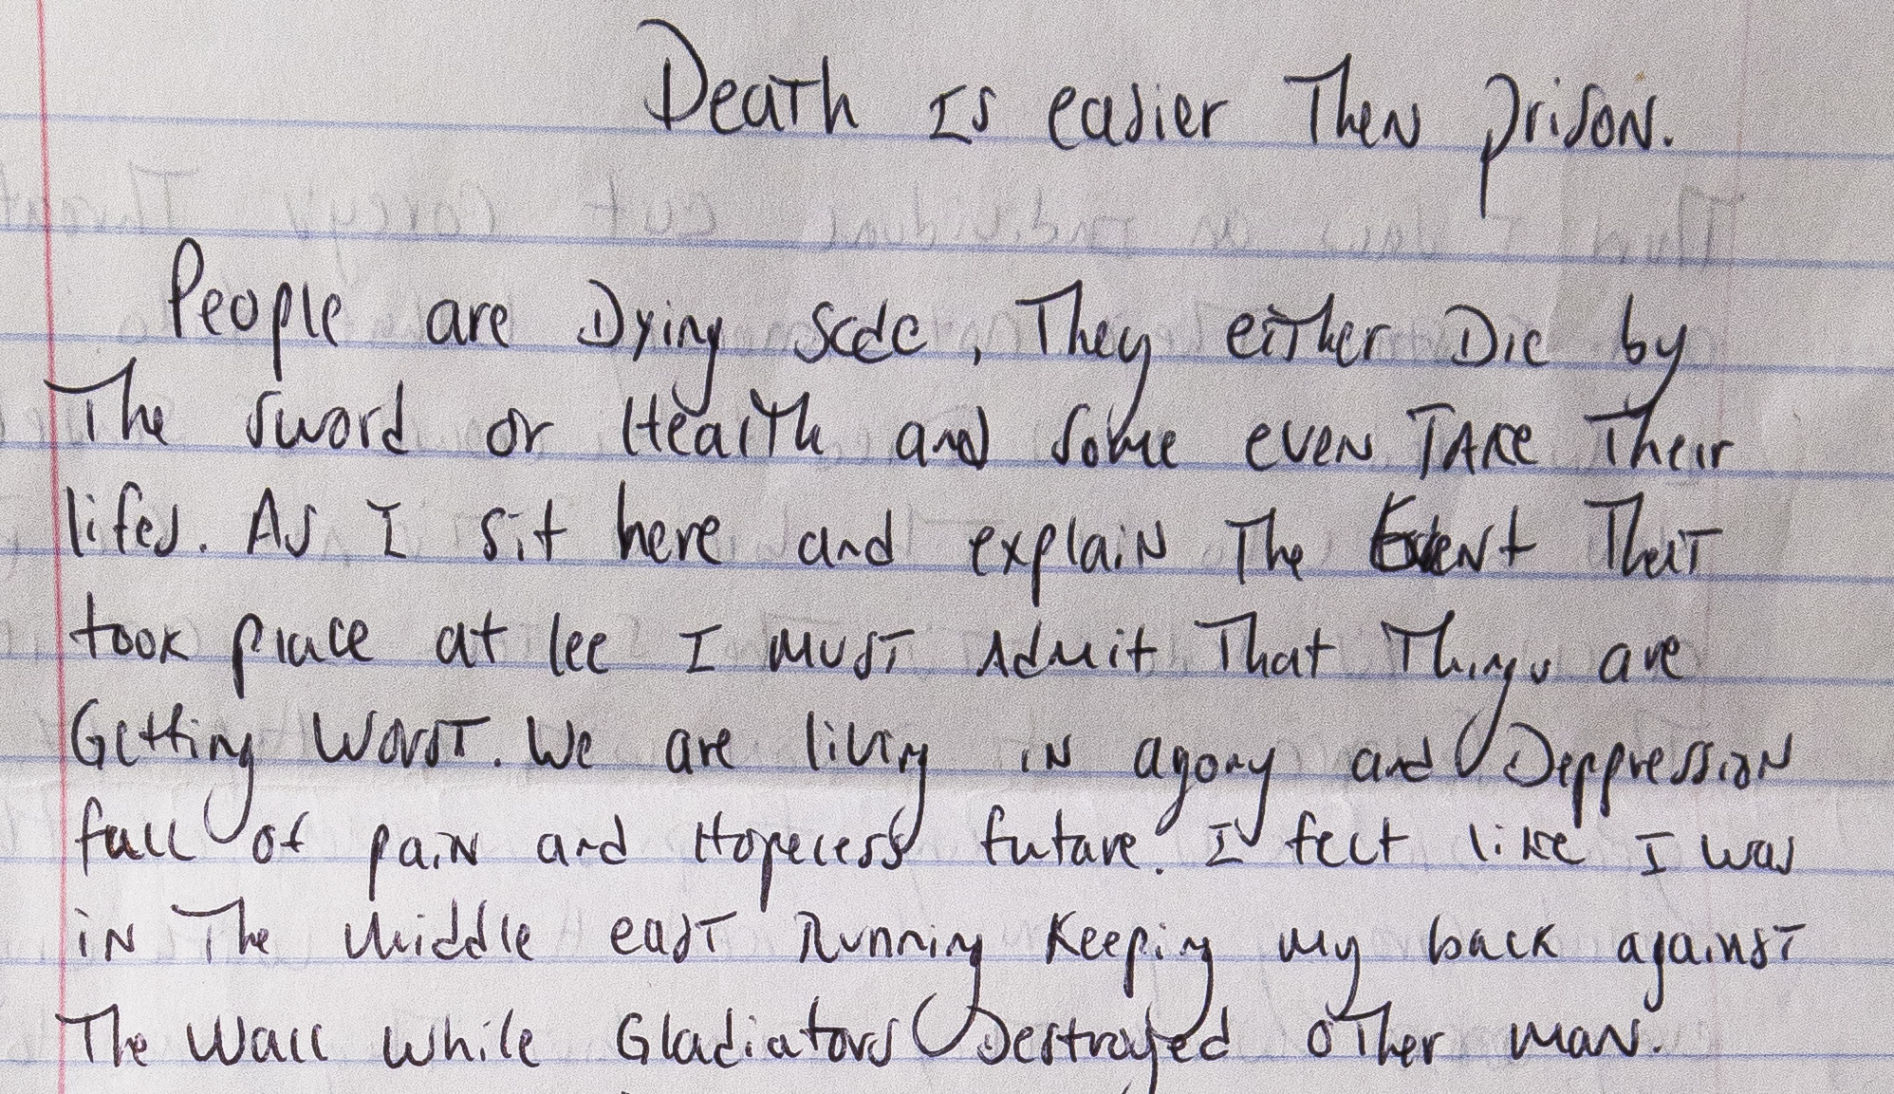 Death Is easier Then prison.
People are Dying Scdc, They either Die by
The sword or Health and some even TAKE Their
lifes. As I sit here and explain The Event That
took place at lee I must Admit That Things are
Getting Worst. We are living in agony and Deppression
full of pain and Hopeless future. I felt like I was
in The Middle east Running Keeping my back against
The Wall while Gladiators Destroyed other man.